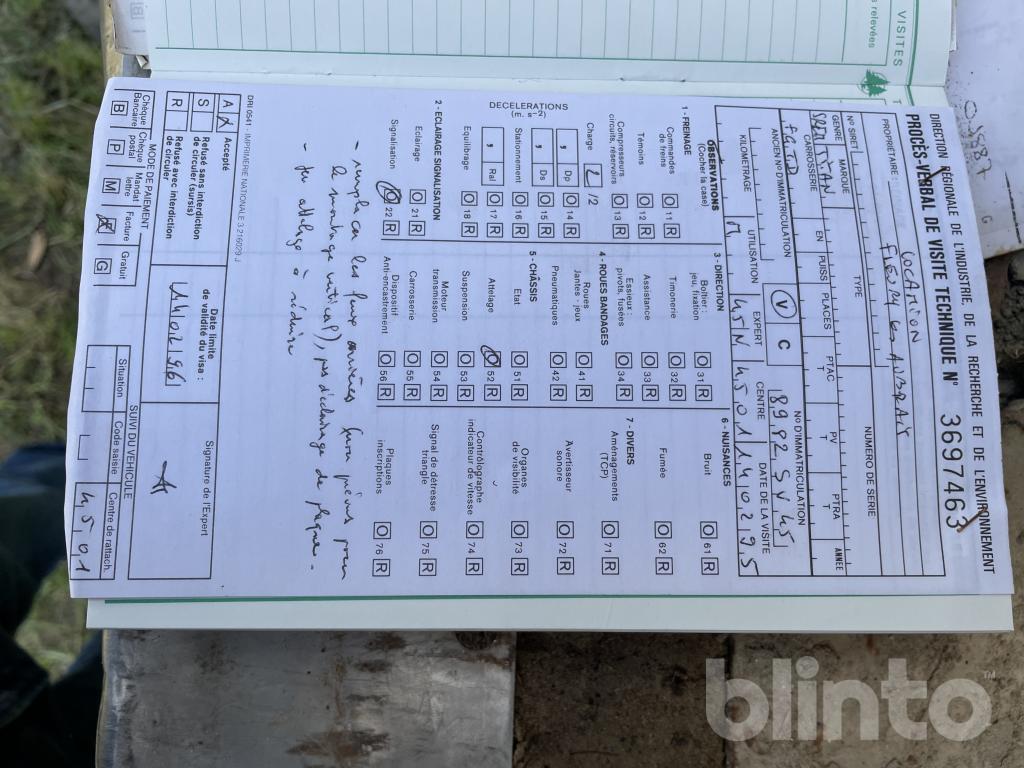 VISITES
s relevées
DIRECTION RÉGIONALE DE L'INDUSTRIE, DE LA RECHERCHE ET DE L'ENVIRONNEMENT
PROCÈS-VERBAL DE VISITE TECHNIQUE N° 36974463
PROPRIÉTAIRE :
LOCATION
No SIRET
TYPE
NUMÉRO DE SÉRIE
GENRE MARQUE EN PUISS PLACES PTAC PV PTRA ANNÉE
T T T
CARROSSERIE
ANCIEN No D'IMMATRICULATION
V C
No D'IMMATRICULATION
8992SV45
KILOMÉTRAGE UTILISATION EXPERT CENTRE DATE DE LA VISITE
4501 140295
OBSERVATIONS
(Cocher la case)
1 - FREINAGE
Commandes de freins O 11 R
Témoins O 12 R
Compresseurs circuits, réservoirs O 13 R
Charge /2
DECELERATIONS
(m. s-2)
, Dp O 14 R
, Ds O 15 R
Stationnement O 16 R
, Ral O 17 R
Equilibrage O 18 R
2 - ECLAIRAGE SIGNALISATION
Eclairage O 21 R
Signalisation O 22 R
3 - DIRECTION
Boîtier : jeu, fixation O 31 R
Timonerie O 32 R
Assistance O 33 R
Essieux : pivots, fusées O 34 R
4 - ROUES BANDAGES
Roues Jantes : jeux O 41 R
Pneumatiques O 42 R
5 - CHÂSSIS
Etat O 51 R
Attelage O 52 R
Suspension O 53 R
Moteur transmission O 54 R
Carrosserie O 55 R
Dispositif Anti-encastrement O 56 R
6 - NUISANCES
Bruit O 61 R
Fumée O 62 R
7 - DIVERS
Aménagements (TCP) O 71 R
Avertisseur sonore O 72 R
Organes de visibilité O 73 R
Contrôlographe indicateur de vitesse O 74 R
Signal de détresse triangle O 75 R
Plaques inscriptions O 76 R
- remplacer les feux arrières (non prévus pour
le montage vertical), pas d'éclairage de plaque -
- jeu attelage à réduire
DRI 0541 - IMPRIMERIE NATIONALE 3 216029 J
A Accepté
S Refusé sans interdiction de circuler (sursis)
R Refusé avec interdiction de circuler
Date limite de validité du visa :
Signature de l'Expert
MODE DE PAIEMENT
Chèque Bancaire Chèque postal Mandat lettre Facture Gratuit
B P M F G
SUIVI DU VÉHICULE
Situation Code saisie Centre de rattach.
4501
blinto™